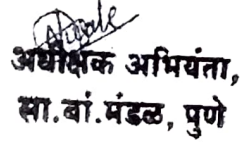 अधीक्षक अभियंता,
सा.बां.मंडळ, पुणे